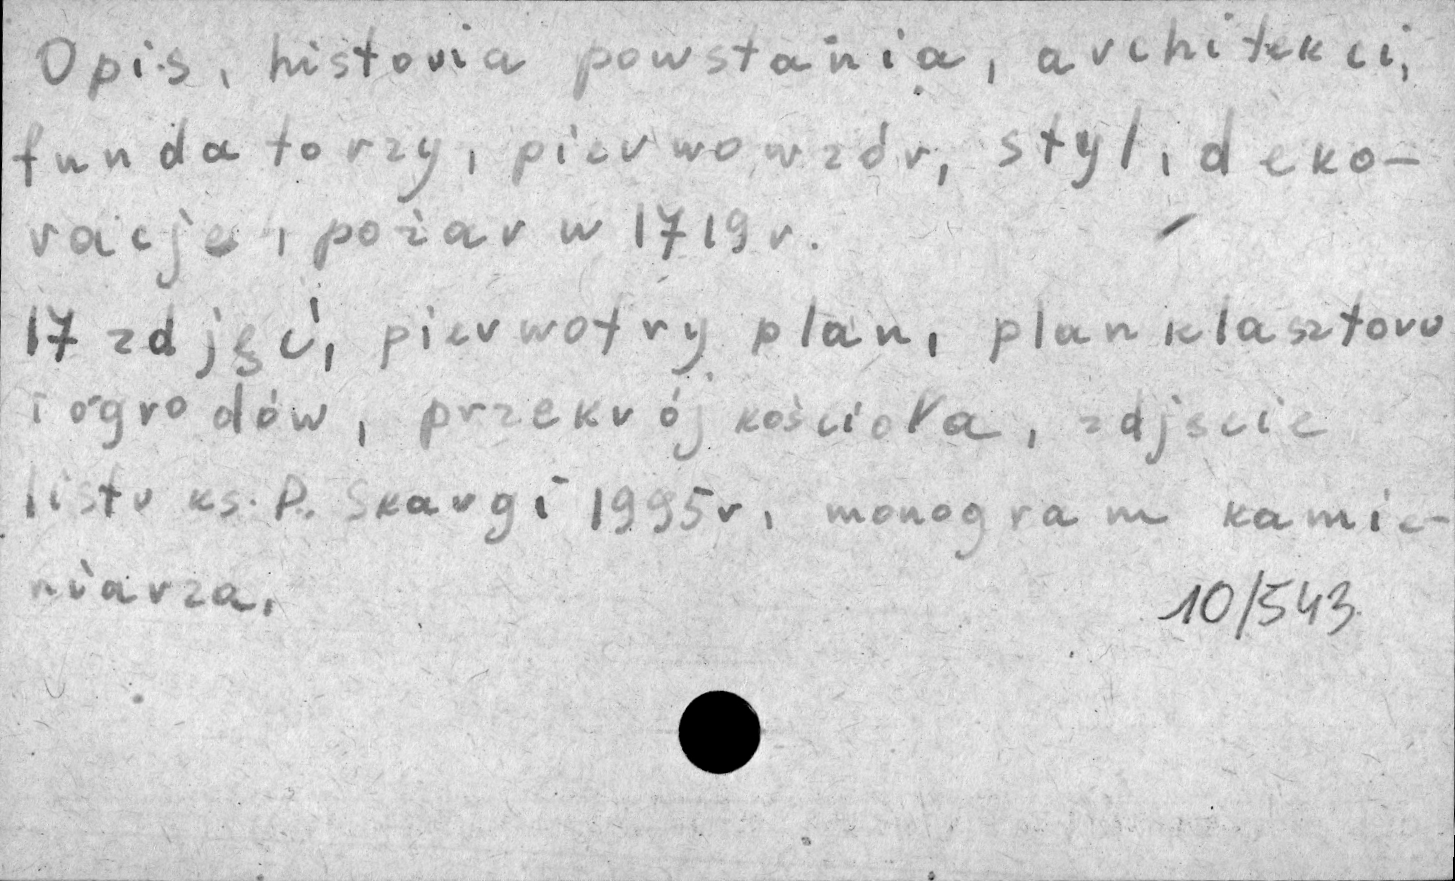 Opis, historia powstania, architekci,
fundatorzy, pierwowzór, styl, deko-
racje, pożar w 1719 r.
17 zdjęć, pierwotny plan, plan klasztoru
i ogrodów, przekrój kościoła, zdjęcie
listu ks. P. Skargi 1995 r, monogram kamie-
niarza,
10/543.